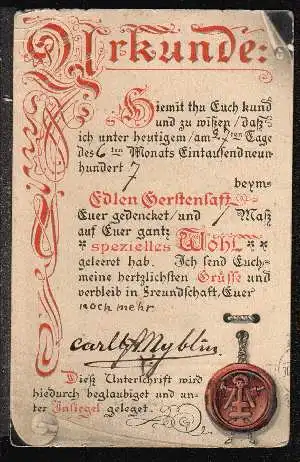 Urkunde:
Hiemit thu Euch kund
und zu wißen / daß
ich unter heutigem / am 27ten Tage
des 6ten Monats Eintausendneun-
hundert 7
beym-
Edlen Gerstensaft
Euer gedencket / und 1 Maß
auf Euer gantz
spezielles Wohl
geleeret hab. Ich send Euch-
meine hertzlichsten Grüsse und
verbleib in Freundschaft, Euer
noch mehr
Dieß Unterschrift wird
hiedurch beglaubiget und un-
ter Insiegel geleget.